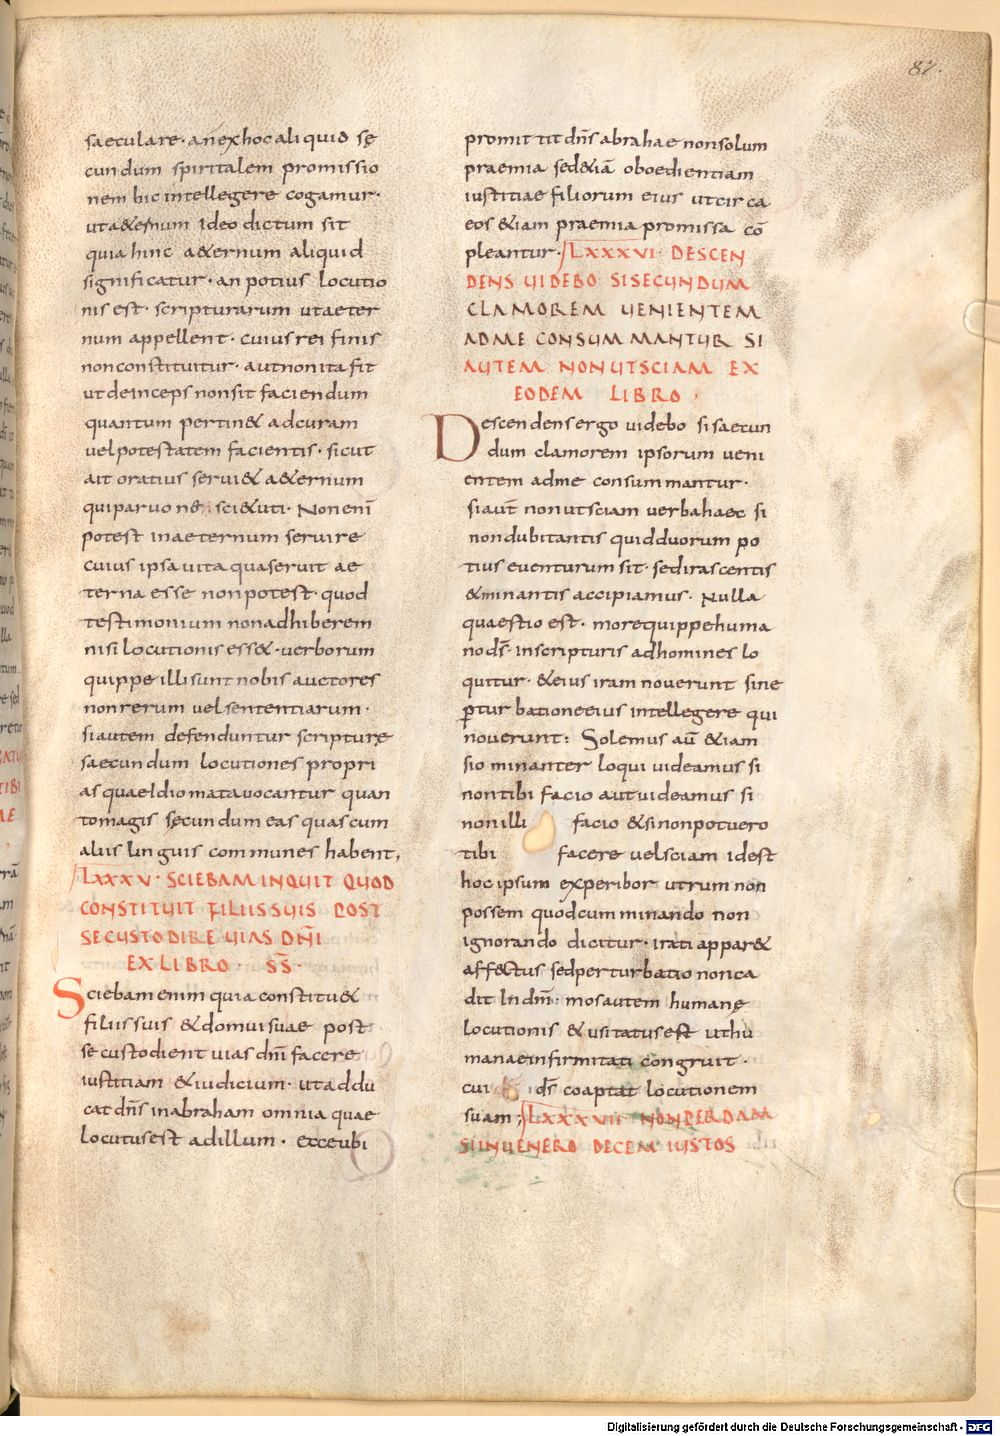 87.
saeculare · an̄ ex hoc aliquid sę
cundum spiritalem promissio
nem hic intellegere cogamur ·
ut a&ernum Ideo dictum sit
quia hinc a&ernum aliquid
significatur · an potius locutio
nis est · scripturarum ut aeter
num appellent · cuius rei finis
non constituitur · aut non ita fit
ut deinceps non sit faciendum
quantum pertin& ad curam
vel potestatem facientis · sicut
ait oratius servi& a&ernum
qui parvo sci& uti · Non enī
potest in aeternum servire
cuius ipsa vita qua servit ae
terna esse non potest · quod
testimonium non adhiberem
nisi locutionis ess& · verborum
quippe illi sunt nobis auctores
non rerum vel sententiarum ·
si autem defenduntur scripturę
saecundum locutiones propri
as quae Idiomata vocantur quan
to magis sęcundum eas quas cum
aliis linguis communes habent,
LXXXV · SCIEBAM INQUIT QUOD
CONSTITUIT FILIIS SUIS POST
SE CUSTODIRE UIAS DN̄I
EX LIBRO · S̄S̄ ·
Sciebam enim quia constitu&
filiis suis & domui suae post
se custodient vias dn̄i facere
iustitiam & iudicium · ut addu
cat dn̄s in abraham omnia quae
locutus est ad illum · ecce ubi
promittit dn̄s abrahae non solum
praemia sed &iā oboedientiam
iustitiae filiorum eius ut circa
eos &iam praemia promissa cō
pleantur · LXXXVI · DESCEN
DENS UIDEBO SI SECUNDUM
CLAMOREM UENIENTEM
AD ME CONSUMMANTUR SI
AUTEM NON UT SCIAM EX
EODEM LIBRO ·
Descendens ergo videbo si saecun
dum clamorem ipsorum veni
entem ad me consummantur ·
si aut̄ non ut sciam verba haec si
non dubitantis quid duorum po
tius eventurum sit · sed irascentis
& minantis accipiamus · Nulla
quaestio est · more quippe huma
no ds̄ · in scripturis ad homines lo
quitur · & eius iram noverunt sine
ꝑturbatione eius intellegere qui
noverunt : Solemus aū &iam
sio minanter loqui videamus si
non tibi facio aut videamus si
non illi facio & si non potuero
tibi facere vel sciam id est
hoc ipsum experibor utrum non
possem quod cum minando non
ignorando dicitur · irati appar&
aff&tus sed perturbatio non ca
dit In dn̄m · mos autem humanę
locutionis & usitatus est ut hu
manae infirmitati congruit ·
cui ds̄ coaptat locutionem
suam ; LXXXVII · NON PERDAM
SI INUENERO DECEM IUSTOS
Digitalisierung gefördert durch die Deutsche Forschungsgemeinschaft - DFG